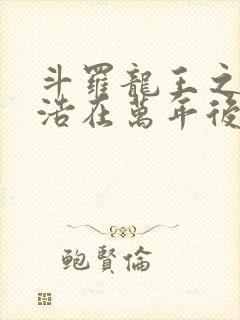 斗羅龍王之
浩在萬年後
鮑賢倫